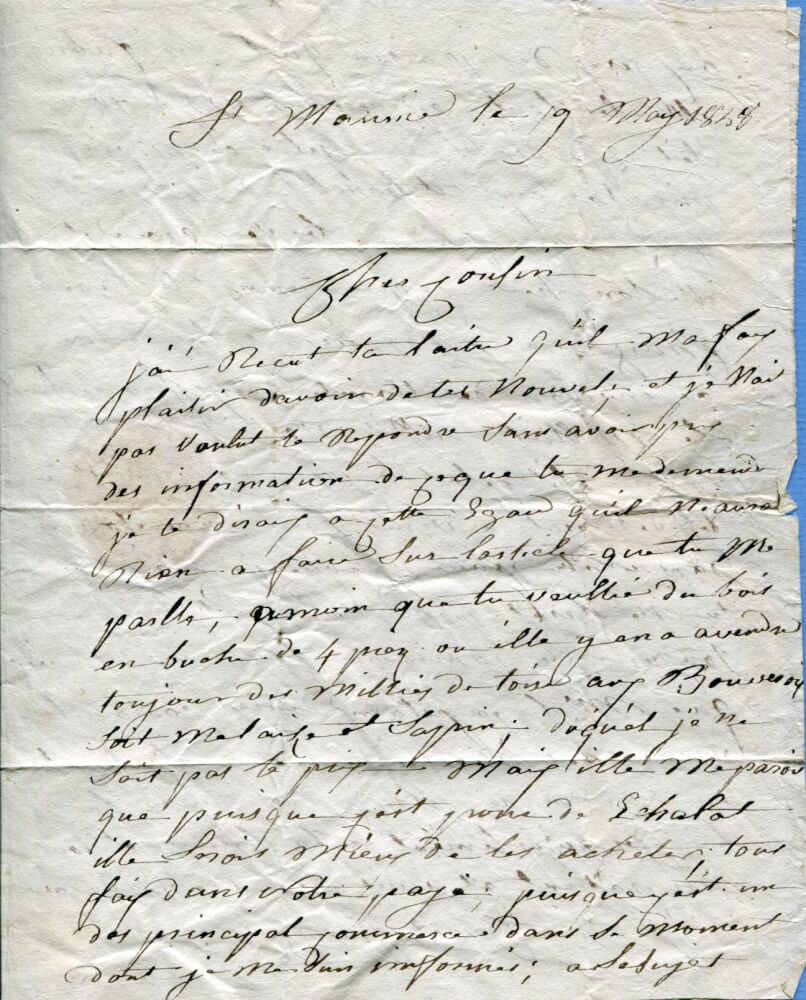 St Maurice le 19 May 1848
Cher Cousin
j'ai Recut ta laitre quil Ma fay
plaisir d'avoir de tes Nouvels, et je Nai
pas voulut te Repondre sans avoir pris
des information de ceque tu me demende
je te diray a cette Egau quil Niaura
Rien a faire sur lasticle que tu Me
parlle, amoin que tu veullié du bois
en buche de 4 piez ou ille y en a avendre
toujour des Milliés de toise aux
soit Melaize et Sapin, duquel je ne
sait pas le prix Maiy ille Me parois
que puisque c'est pour de Echalat
ille serois Mieux de les acheter, tous
fay dans votre payé, puisque c'est un
des principal commerce dans se Moment
dont je me suis informés; a Sesujet